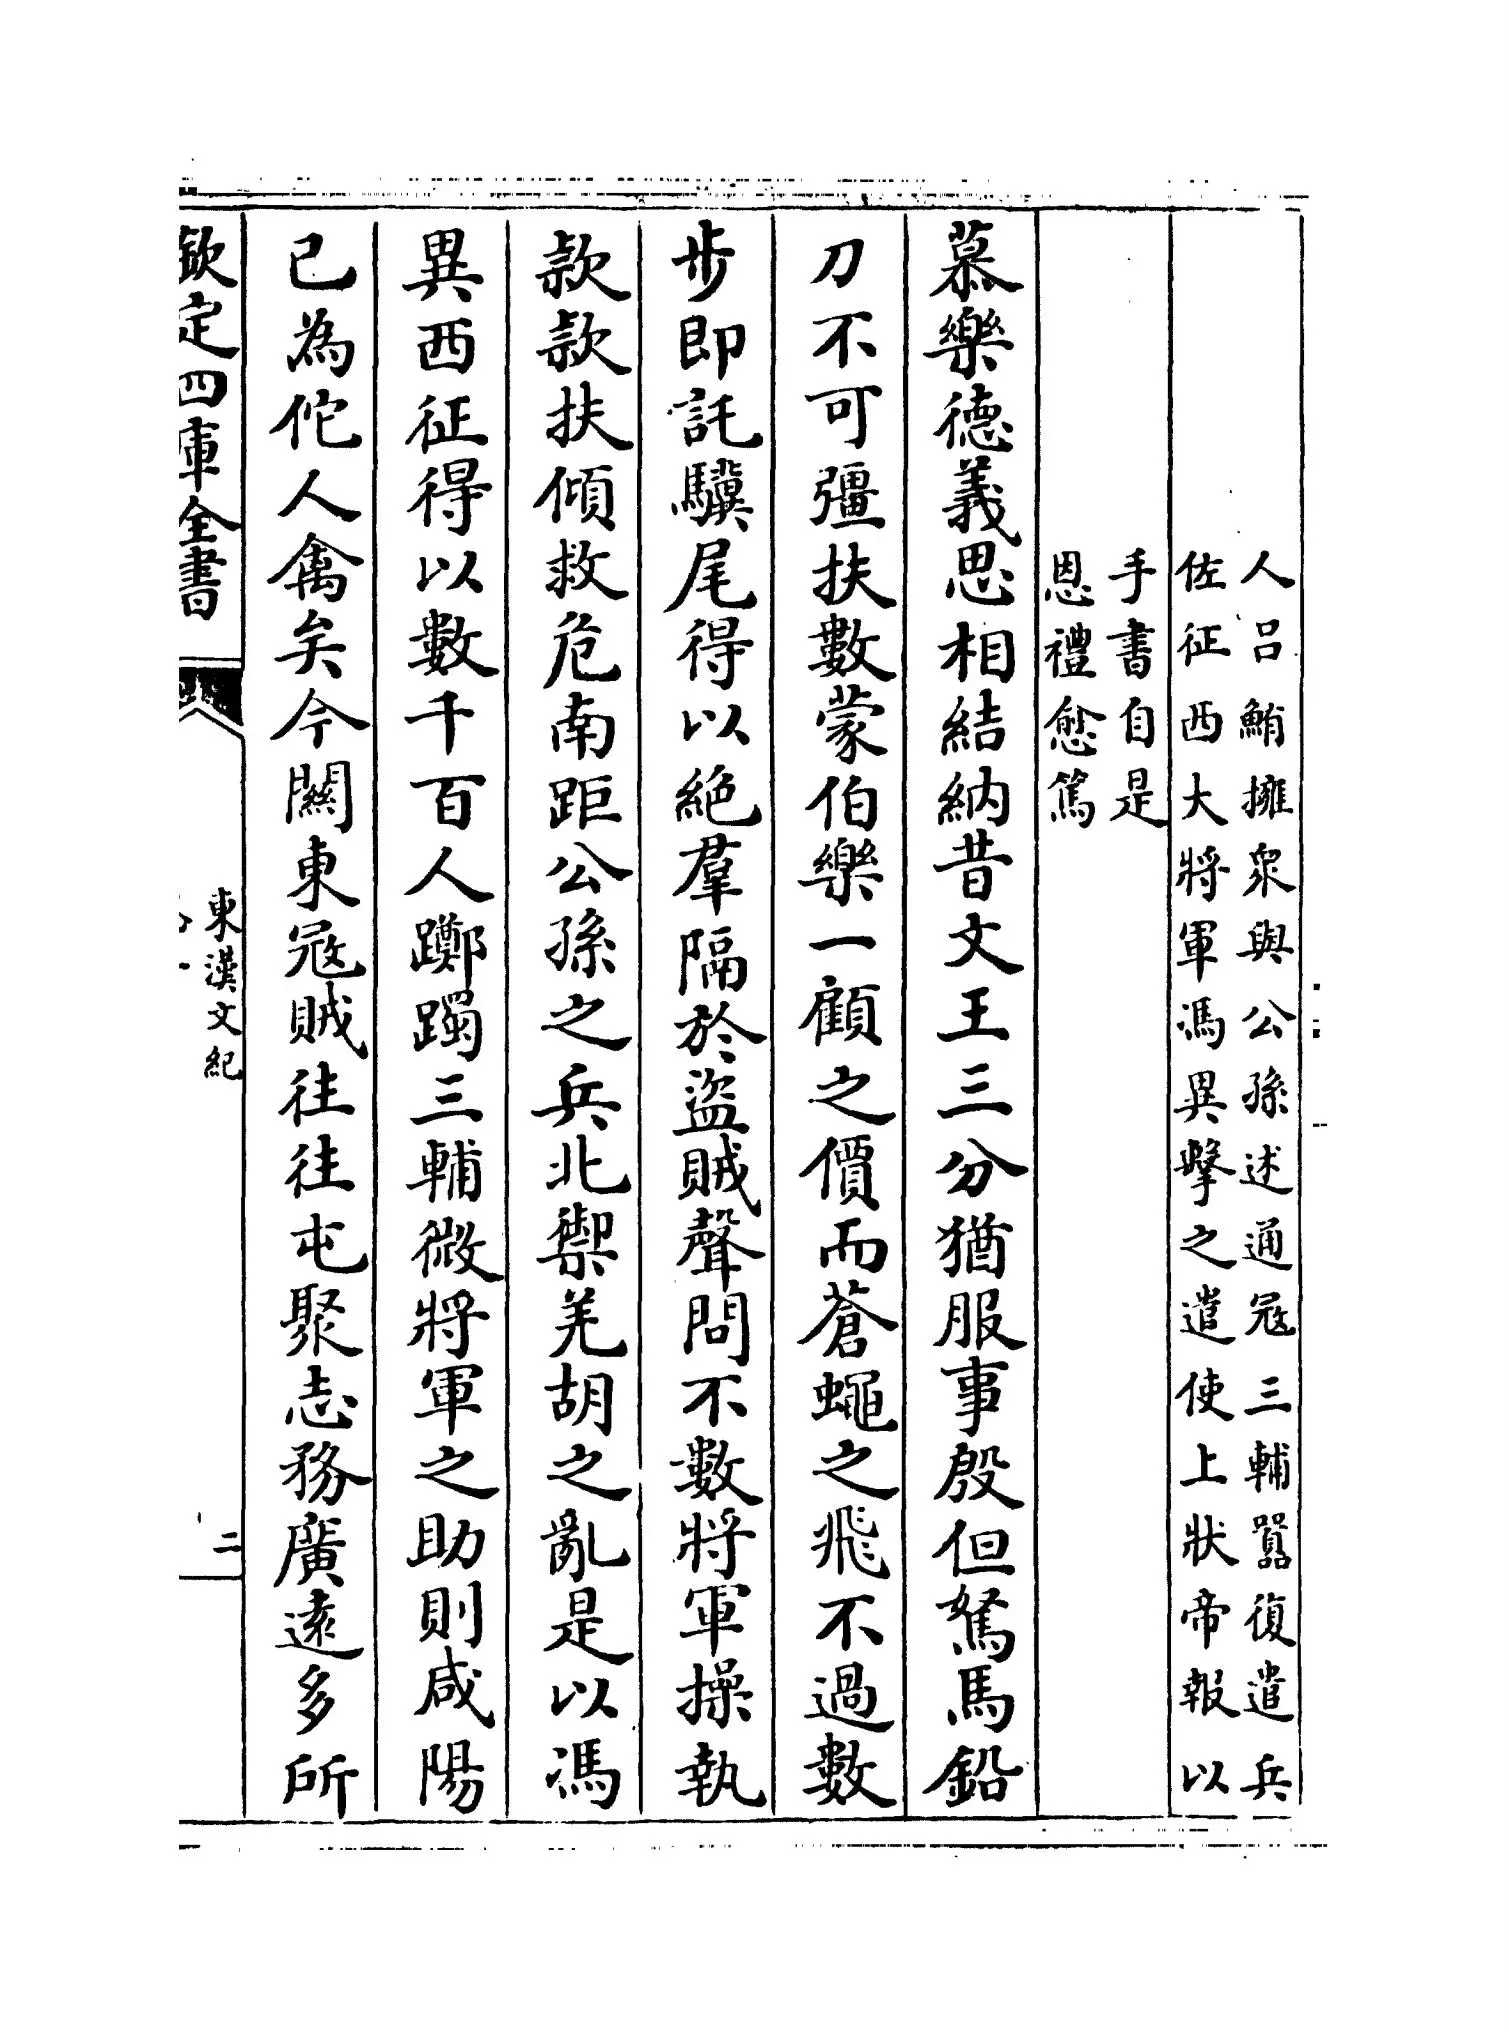 人呂鮪擁衆與公孫述通冦三輔囂復遣兵
佐征西大將軍馮異擊之遣使上狀帝報以
手書自是
恩禮愈篤
慕樂德義思相結納昔文王三分猶服事殷但駑馬鉛
刀不可彊扶數蒙伯樂一顧之價而蒼蠅之飛不過數
步即託驥尾得以絶羣隔於盜賊聲問不數將軍操執
款款扶傾救危南距公孫之兵北禦羌胡之亂是以馮
異西征得以數千百人躑躅三輔微將軍之助則咸陽
已為佗人禽矣今關東冦賊往往屯聚志務廣遠多所
欽定四庫全書
東漢文紀
二